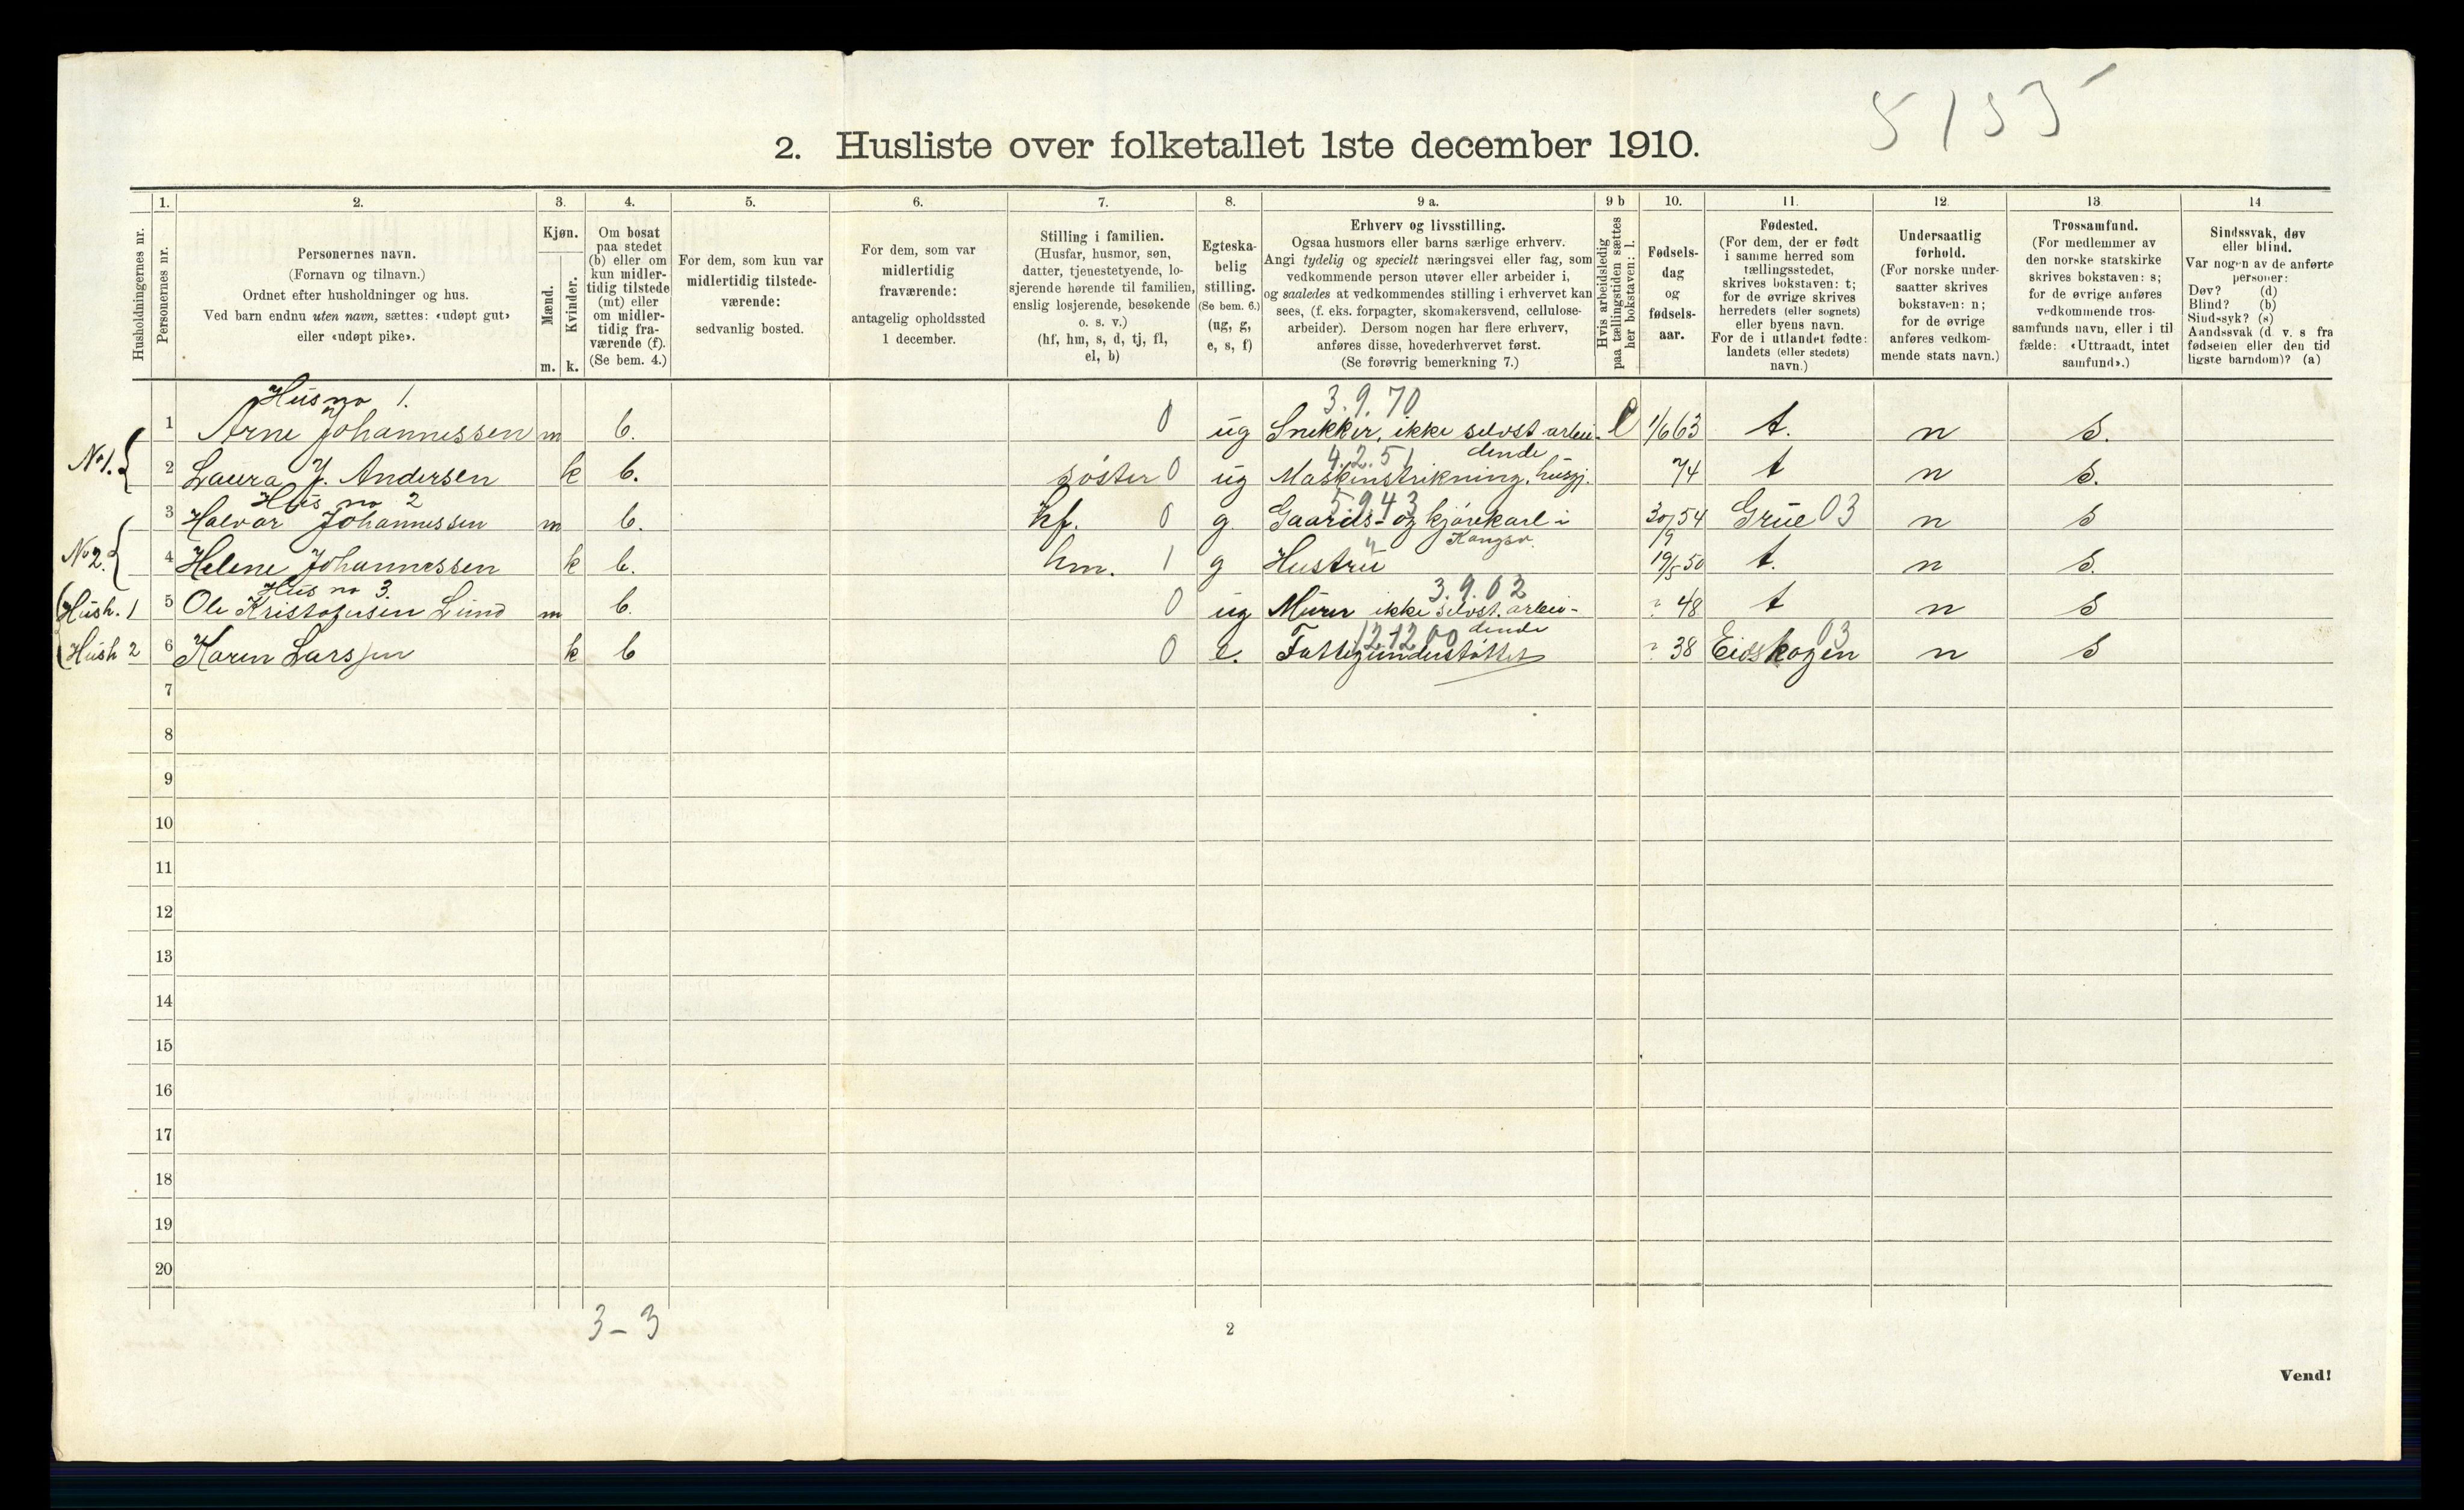 5/35
2. Husliste over folketallet 1ste december 1910.
Husholdningernes nr.
1.
Personernes nr.
2.
Personernes navn.
(Fornavn og tilnavn.)
Ordnet efter husholdninger og hus.
Ved barn endnu uten navn, sættes: «udøpt gut»
eller «udøpt pike».
3.
Kjøn.
Mænd.
m.
Kvinder.
k.
4.
Om bosat
paa stedet
(b) eller om
kun midler-
tidig tilstede
(mt) eller
om midler-
tidig fra-
værende (f).
(Se bem. 4.)
5.
For dem, som kun var
midlertidig tilstede-
værende:
sedvanlig bosted.
6.
For dem, som var
midlertidig
fraværende:
antagelig opholdssted
1 december.
7.
Stilling i familien.
(Husfar, husmor, søn,
datter, tjenestetyende, lo-
sjerende hørende til familien,
enslig losjerende, besøkende
o. s. v.)
(hf, hm, s, d, tj, fl,
el, b)
8.
Egteska-
belig
stilling.
(Se bem. 6.)
(ug, g,
e, s, f)
9 a.
Erhverv og livsstilling.
Ogsaa husmors eller barns særlige erhverv.
Angi tydelig og specielt næringsvei eller fag, som
vedkommende person utøver eller arbeider i,
og saaledes at vedkommendes stilling i erhvervet kan
sees, (f. eks. forpagter, skomakersvend, cellulose-
arbeider). Dersom nogen har flere erhverv,
anføres disse, hovederhvervet først.
(Se forøvrig bemerkning 7.)
9 b
Hvis arbeidsledig
paa tællingstiden sættes
her bokstaven: l.
10.
Fødsels-
dag
og
fødsels-
aar.
11.
Fødested.
(For dem, der er født
i samme herred som
tællingsstedet,
skrives bokstaven: t;
for de øvrige skrives
herredets (eller sognets)
eller byens navn.
For de i utlandet fødte:
landets (eller stedets)
navn.)
12.
Undersaatlig
forhold.
(For norske under-
saatter skrives
bokstaven: n;
for de øvrige
anføres vedkom-
mende stats navn.)
13.
Trossamfund.
(For medlemmer av
den norske statskirke
skrives bokstaven: s;
for de øvrige anføres
vedkommende tros-
samfunds navn, eller i til
fælde: «Uttraadt, intet
samfund».)
14
Sindssvak, døv
eller blind.
Var nogen av de anførte
personer:
Døv? (d)
Blind? (b)
Sindssyk? (s)
Aandssvak (d. v. s. fra
fødselen eller den tid
ligste barndom)? (a)
Hus no 1. 3.9.70
1 Arne Johannessen m b. 0 ug Snekker, ikke selvst. arbei- l 1/6 63 t. n s.
dende
No 1. 4.2.51
2 Laura J. Andersen k b. søster 0 ug Maskinstrikning, husgj. 74 t n s.
Hus no 2 5.9.43
3 Halvor Johannessen m b. hf. 0 g. Gaards- og kjørekarl i 30/9 54 Grue 03 n s
Kongsv.
No 2. 4 Helene Johannessen k b. hm. 1 g Hustru 19/5 50 t. n s.
Hus no 3. 3.9.02
Hush. 1 5 Ole Kristofersen Lund m b. 0 ug Murer ikke selvst. arbei- ? 48 t n s
dende
12.12.00
Hush 2 6 Karen Larssen k b 0 e. Fattigunderstøttet ? 38 Eidskogen 03 n s
7
8
9
10
11
12
13
14
15
16
17
18
19
20
3-3
2
Vend!